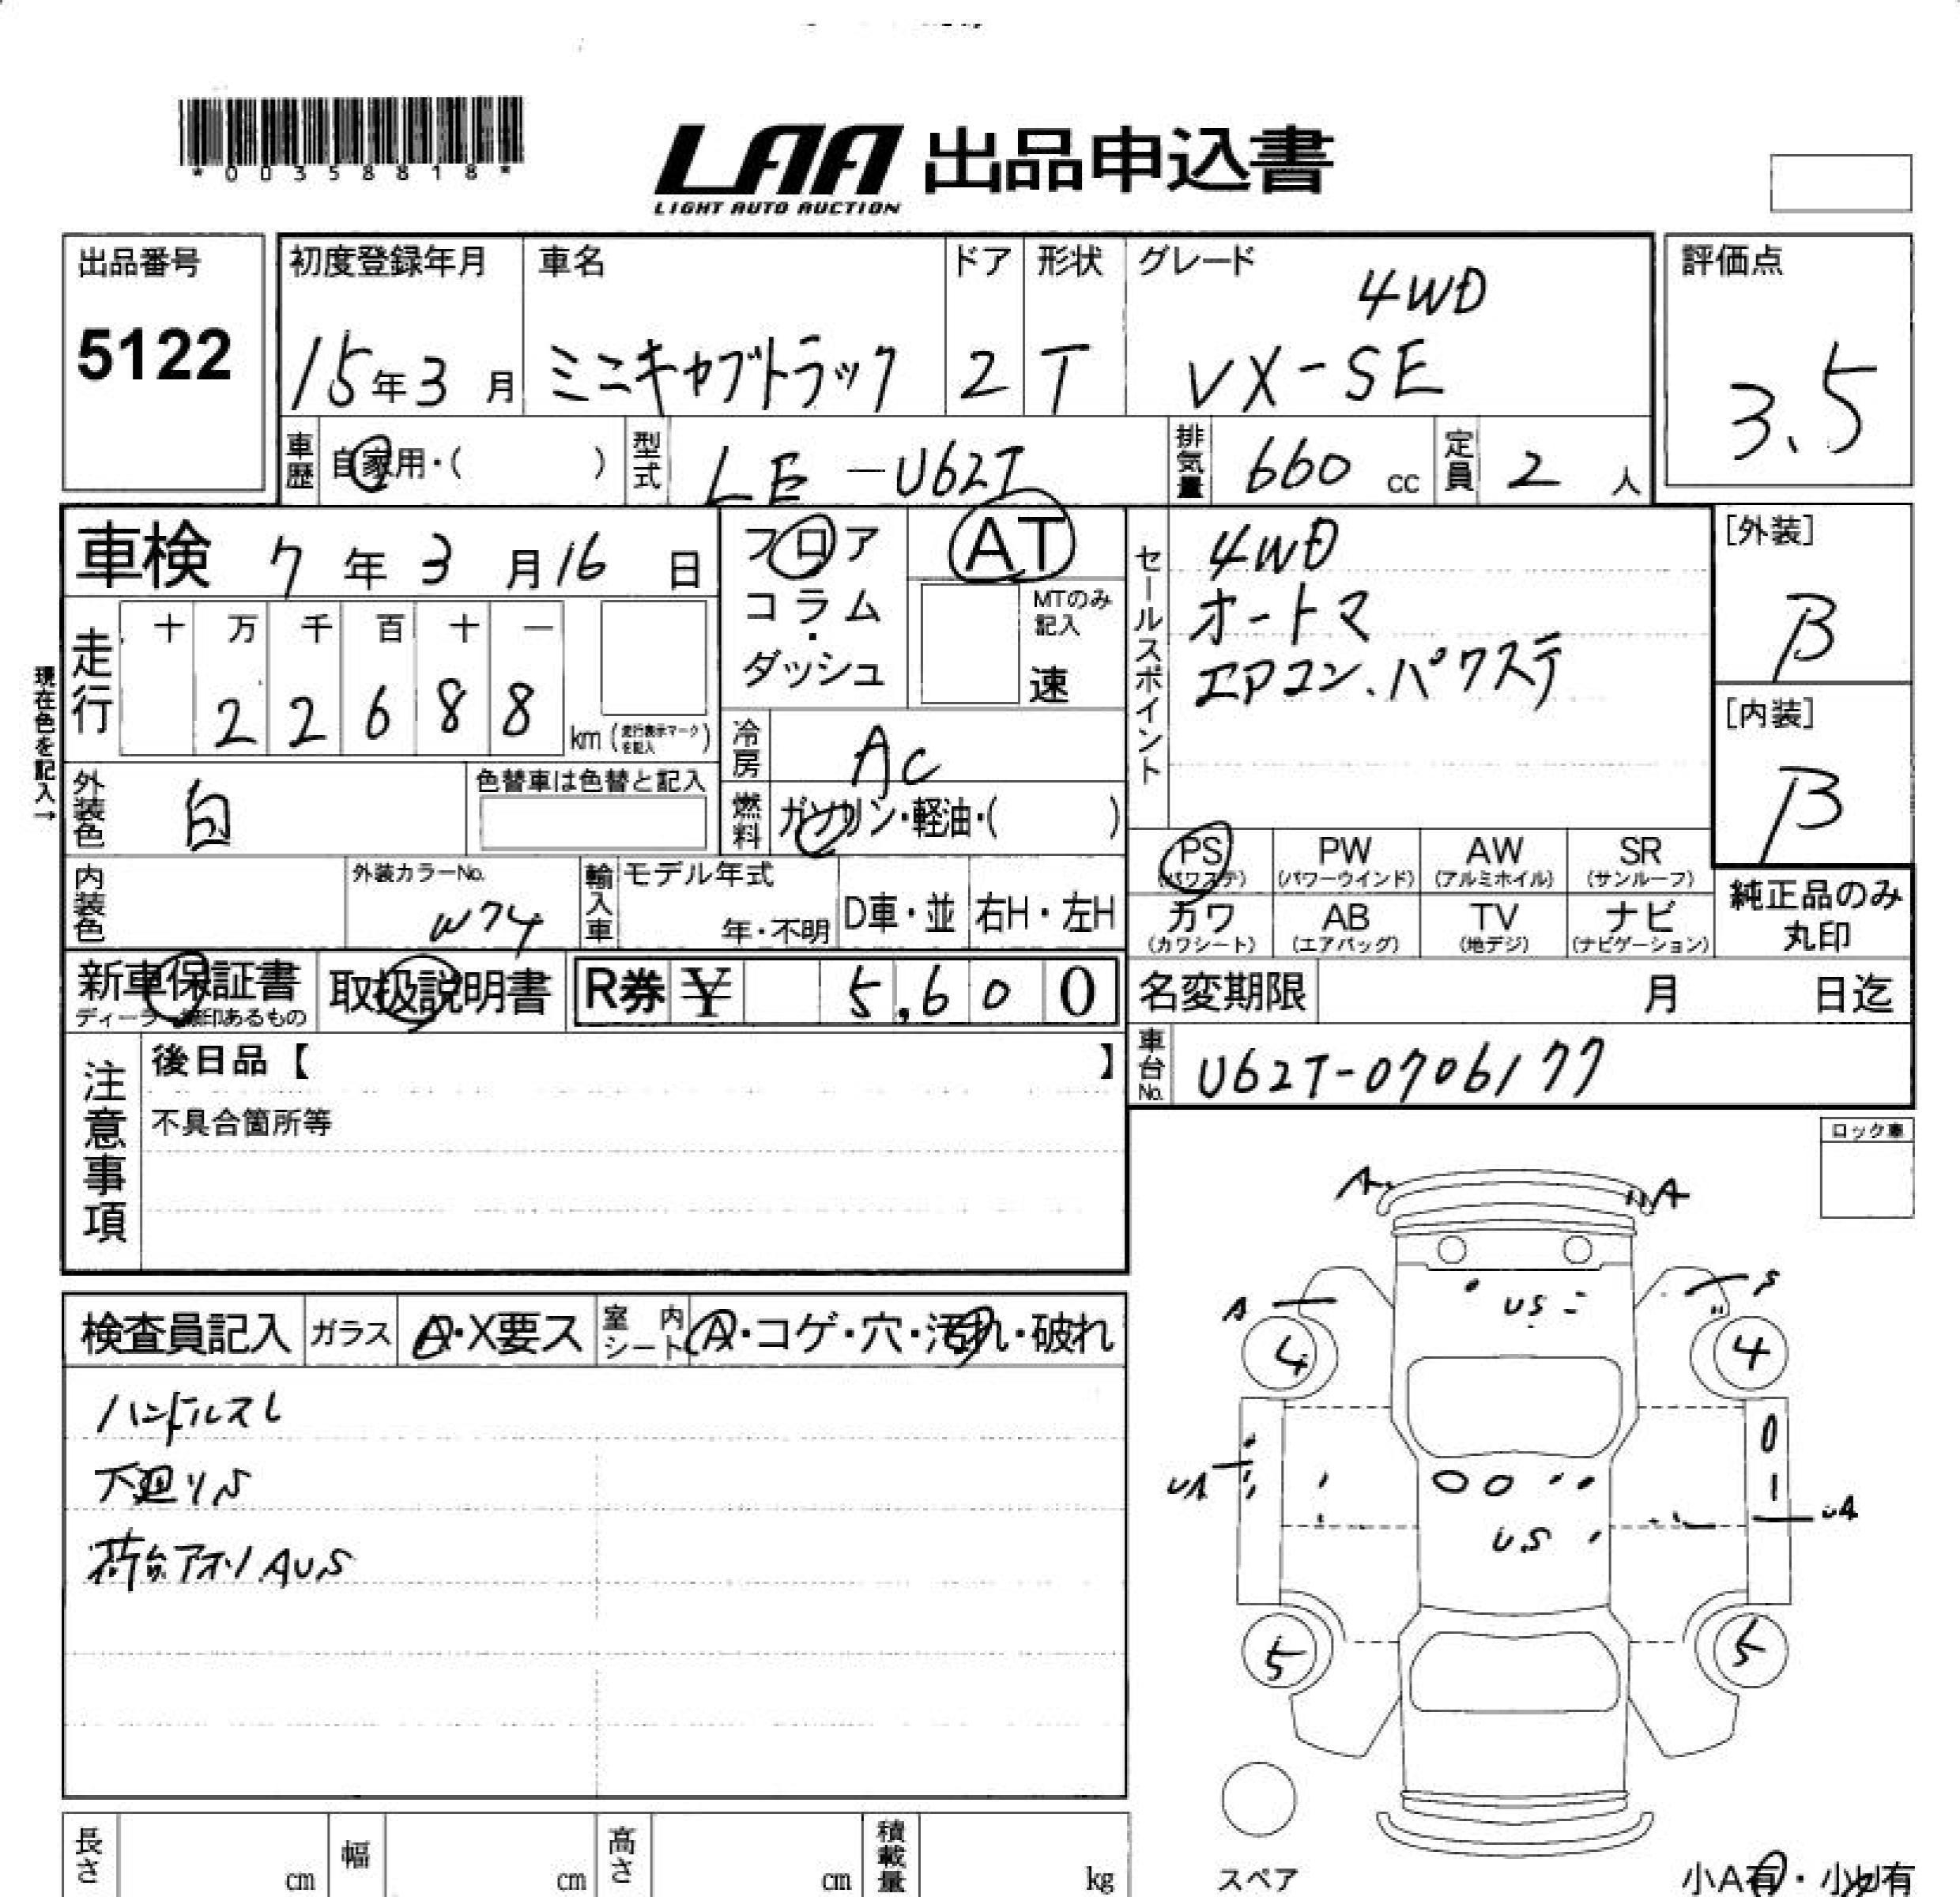 *00358818*
LAA 出品申込書
LIGHT AUTO AUCTION
出品番号
5122
初度登録年月
15年3月
車名
ミニキャブトラック
ドア
2
形状
T
グレード
4WD
VX-SE
評価点
3.5
車歴 自家用・( )
型式 LE-U62T
排気量 660 cc
定員 2 人
車検 7年3月16日
フロア
コラム
・
ダッシュ
AT
MTのみ
記入
速
走行
十 万 千 百 十 一
2 2 6 8 8
km (走行表示マークを記入)
現在色を記入→
冷房 AC
外装色 白
色替車は色替と記入
燃料 ガソリン・軽油・( )
内装色
外装カラーNo.
W74
輸入車
モデル年式
年・不明
D車・並
右H・左H
セールスポイント
4WD
オートマ
エアコン、パワステ
[外装]
B
[内装]
B
PS (パワステ)
PW (パワーウインド)
AW (アルミホイル)
SR (サンルーフ)
カワ (カワシート)
AB (エアバッグ)
TV (地デジ)
ナビ (ナビゲーション)
純正品のみ
丸印
新車保証書
取扱説明書
R券 ¥ 5,600
名変期限 月 日迄
車台No. U62T-0706177
注意事項
後日品【 】
不具合箇所等
ロック車
検査員記入
ガラス A・X要ス
室内シート A・コゲ・穴・汚れ・破れ
ハンドルスレ
下廻りS
荷台アオリAUS
A
A
A
S
US
4
4
UA
UA
US
5
5
スペア
長さ cm
幅 cm
高さ cm
積載量 kg
小A有・小U有